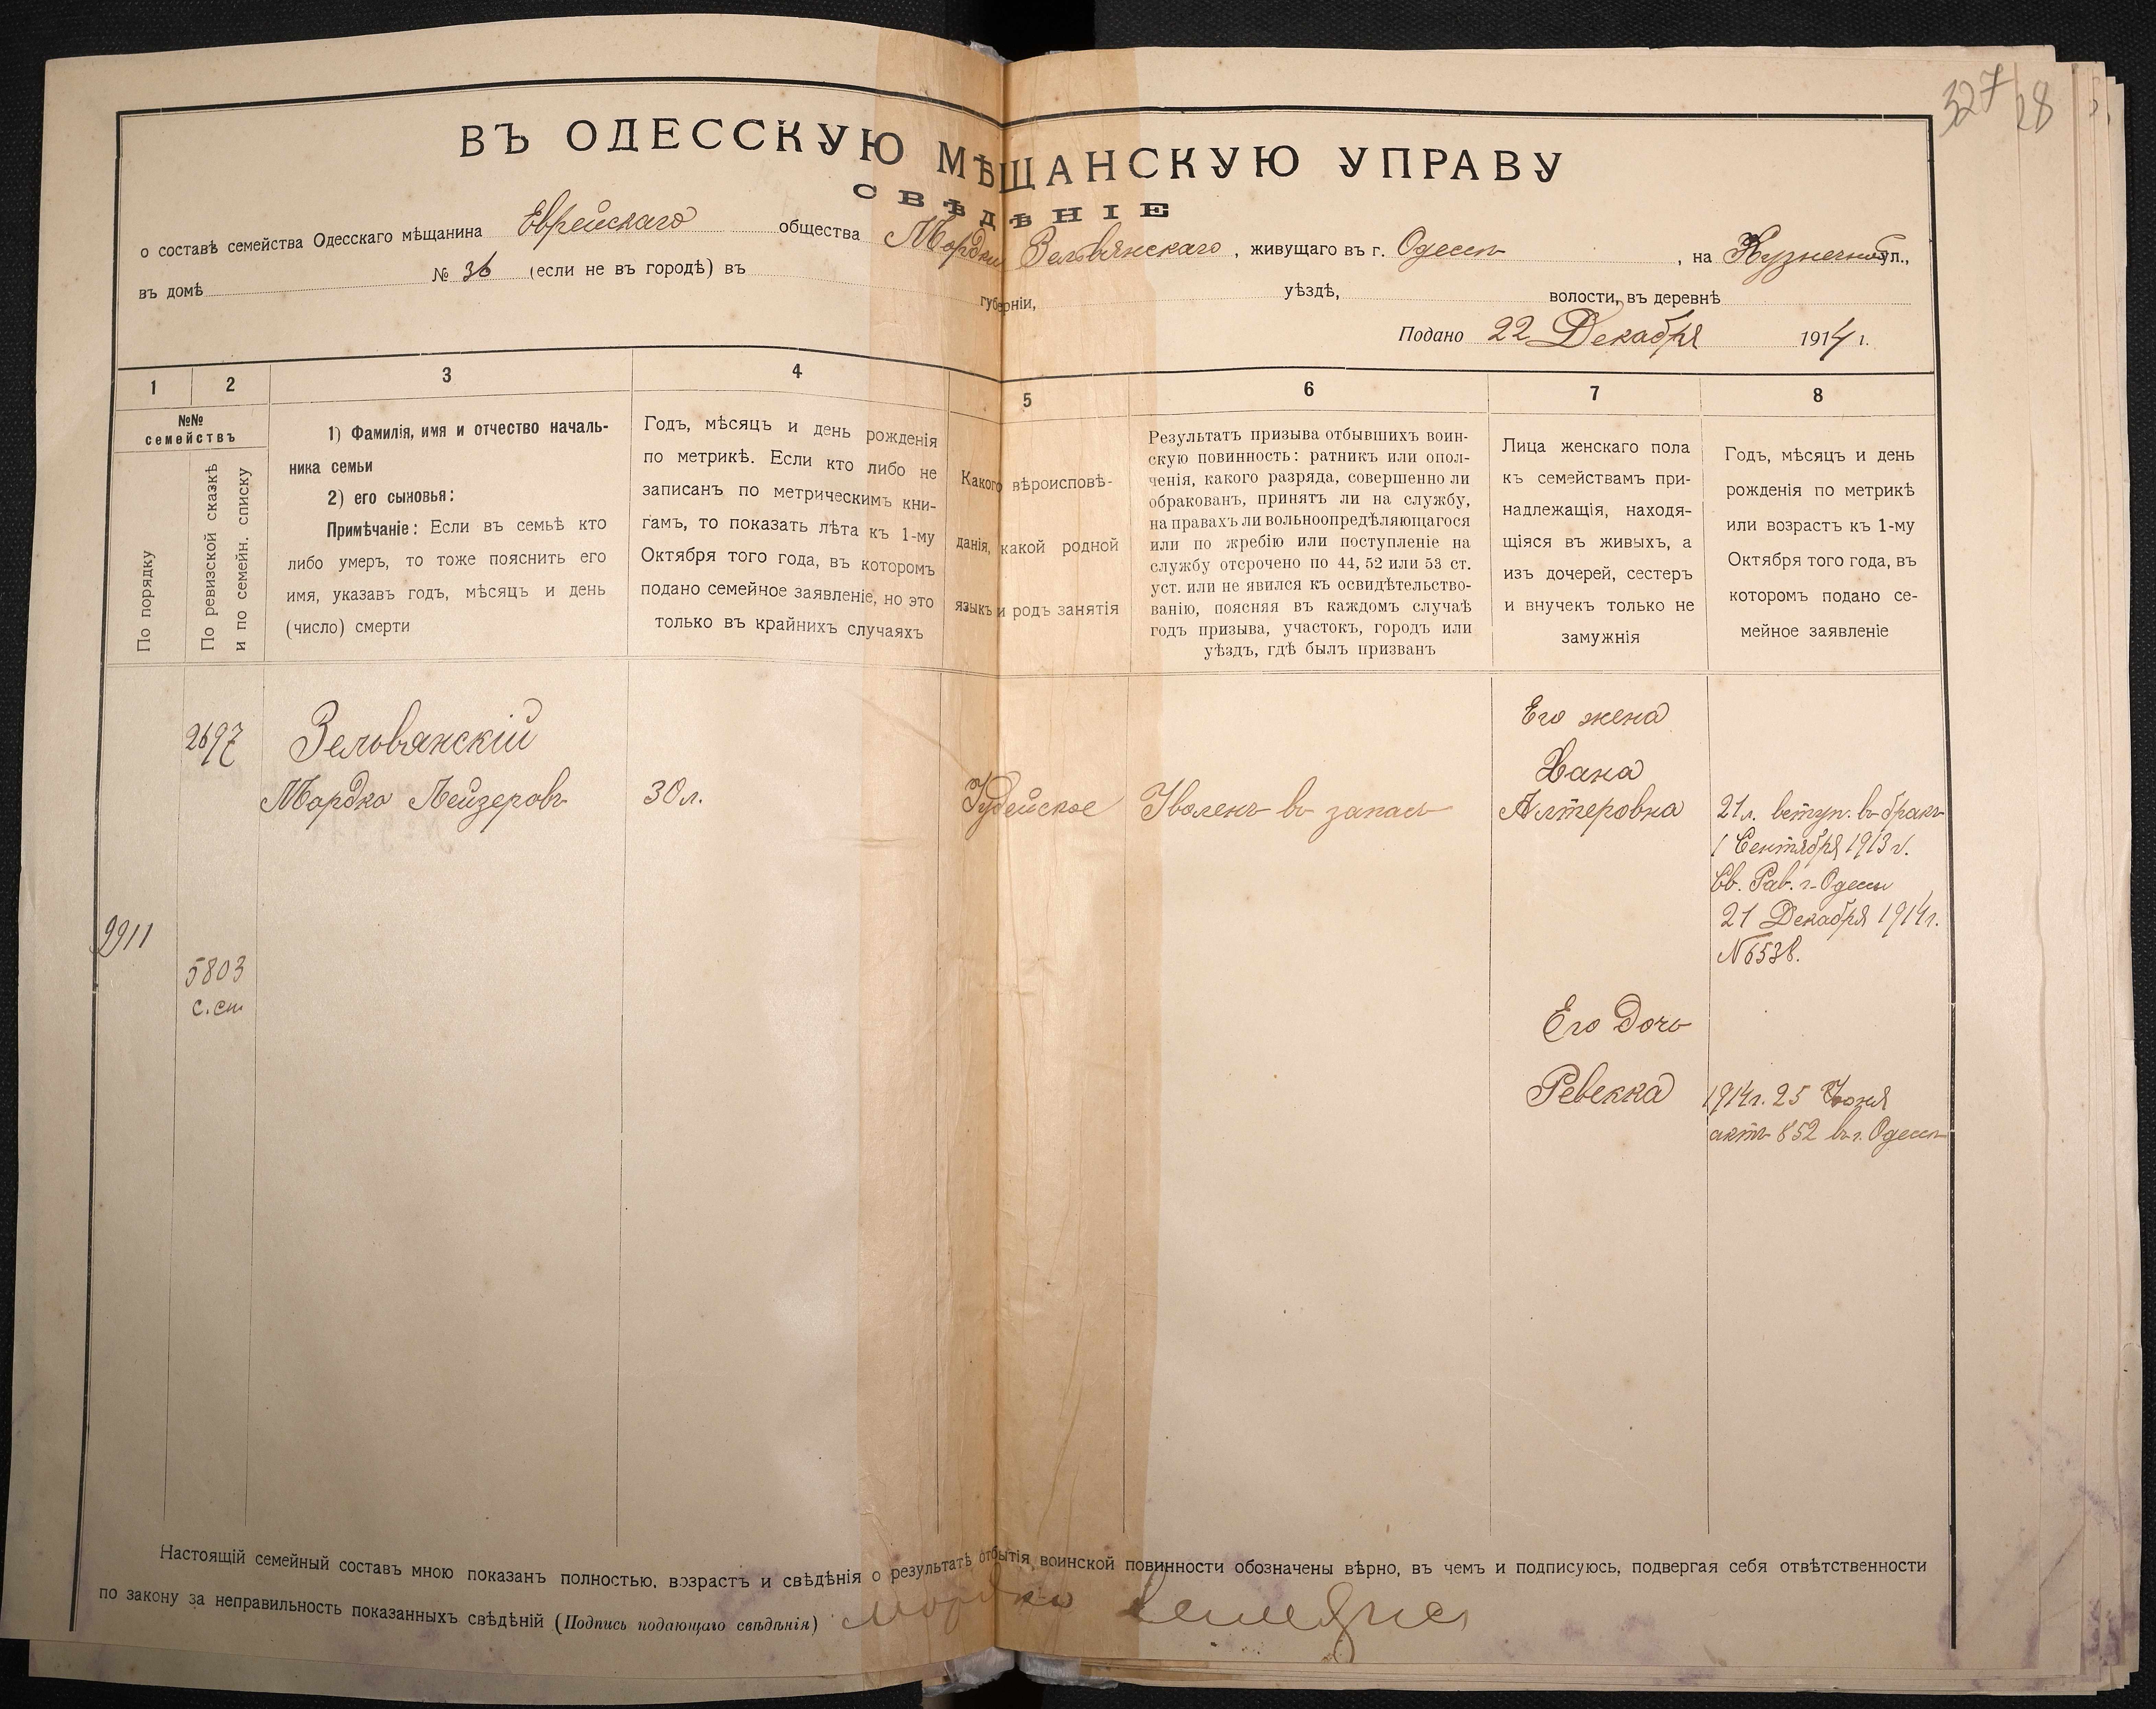 327 28
ВЪ ОДЕССКУЮ МѢЩАНСКУЮ УПРАВУ
СВѢДѢНІЕ
о составѣ семейства Одесскаго мѣщанина Еврейскаго общества Мордки Зельвянскаго, живущаго въ г. Одессѣ, на Кузнечной ул.,
въ домѣ № 36 (если не въ городѣ) въ губерніи, уѣздѣ, волости, въ деревнѣ
Подано 22 Декабря 1914 г.
1 2 3 4 5 6 7 8
№№
семействъ
По порядку
По ревизской сказкѣ
и по семейн. списку
1) Фамилія, имя и отчество началь-
ника семьи
2) его сыновья:
Примѣчаніе: Если въ семьѣ кто
либо умеръ, то тоже пояснить его
имя, указавъ годъ, мѣсяцъ и день
(число) смерти
Годъ, мѣсяцъ и день рожденія
по метрикѣ. Если кто либо не
записанъ по метрическимъ кни-
гамъ, то показать лѣта къ 1-му
Октября того года, въ которомъ
подано семейное заявленіе, но это
только въ крайнихъ случаяхъ
Какого вѣроисповѣ-
данія, какой родной
языкъ и родъ занятія
Результатъ призыва отбывшихъ воин-
скую повинность: ратникъ или опол-
ченія, какого разряда, совершенно ли
обракованъ, принятъ ли на службу,
на правахъ ли вольноопредѣляющагося
или по жребію или поступленіе на
службу отсрочено по 44, 52 или 53 ст.
уст. или не явился къ освидѣтельство-
ванію, поясняя въ каждомъ случаѣ
годъ призыва, участокъ, городъ или
уѣздъ, гдѣ былъ призванъ
Лица женскаго пола
къ семействамъ при-
надлежащія, находя-
щіяся въ живыхъ, а
изъ дочерей, сестеръ
и внучекъ только не
замужнія
Годъ, мѣсяцъ и день
рожденія по метрикѣ
или возрастъ къ 1-му
Октября того года, въ
которомъ подано се-
мейное заявленіе
2697
Зельвянскій
Мордко Лейзеровъ
30 л.
Іудейское
Уволенъ въ запасъ
Его жена
Хана
Алтеровна
21 л. вступ. въ бракъ
1 Сентября 1913 г.
Св. Рав. г. Одессы
21 Декабря 1914 г.
№ 6538.
2911
5803
с. сп.
Его Дочь
Ревекка
1914 г. 25 Іюня
актъ 852 въ г. Одессѣ
Настоящій семейный составъ мною показанъ полностью, возрастъ и свѣдѣнія о результатѣ отбытія воинской повинности обозначены вѣрно, въ чемъ и подписуюсь, подвергая себя отвѣтственности
по закону за неправильность показанныхъ свѣдѣній (Подпись подающаго свѣдѣнія) Мордко